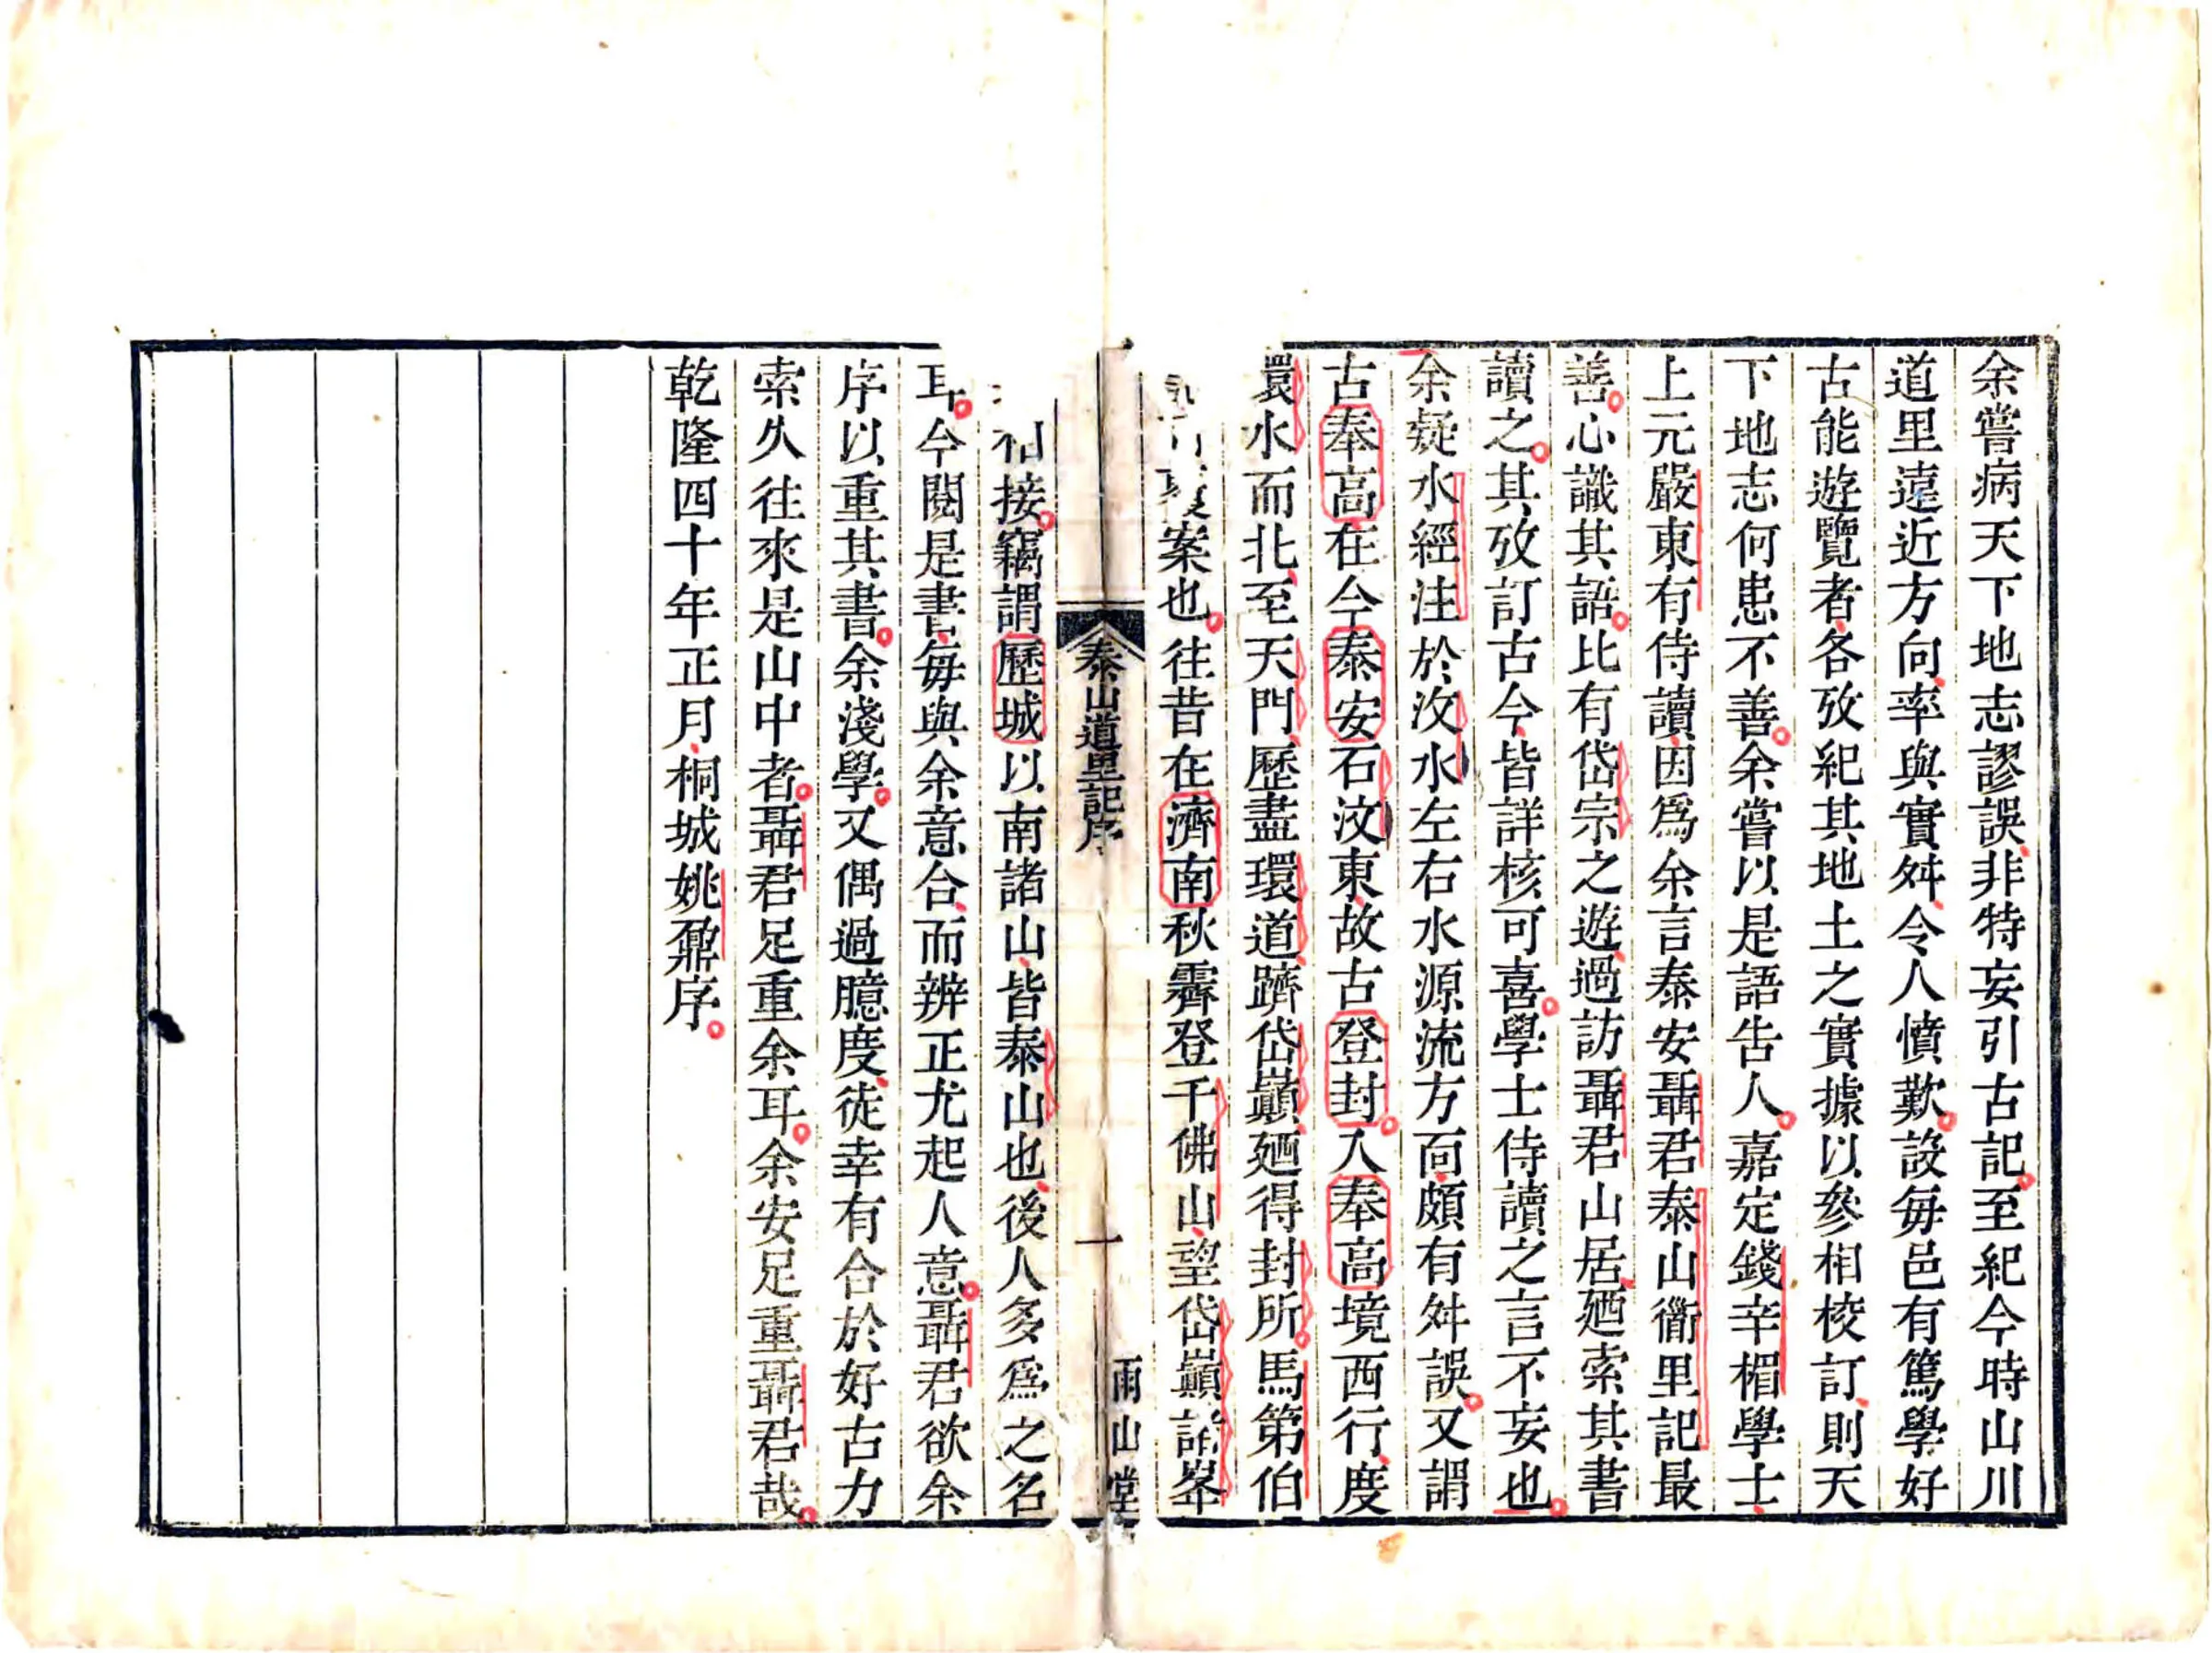 余嘗病天下地志謬誤非特妄引古記至紀今時山川
道里遠近方向率與實舛令人憤歎設毎邑有篤學好
古能遊覽者各攷紀其地土之實據以參相校訂則天
下地志何患不善余嘗以是語告人嘉定錢辛楣學士
上元嚴東有侍讀因爲余言泰安聶君泰山衜里記最
善心識其語比有岱宗之遊過訪聶君山居廼索其書
讀之其攷訂古今皆詳核可喜學士侍讀之言不妄也
余疑水經注於汶水左右水源流方面頗有舛誤又謂
古奉高在今泰安石汶東故古登封入奉高境西行度
環水而北至天門歷盡環道躋岱巔廼得封所馬第伯
案也往昔在濟南秋霽登千佛山望岱巔諸峯
接竊謂歷城以南諸山皆泰山也後人多爲之名
耳今閱是書毎與余意合而辨正尤起人意聶君欲余
序以重其書余淺學又偶過臆度徒幸有合於好古力
索久往來是山中者聶君足重余耳余安足重聶君哉
乾隆四十年正月桐城姚鼐序
泰山道里記序
一
雨山堂